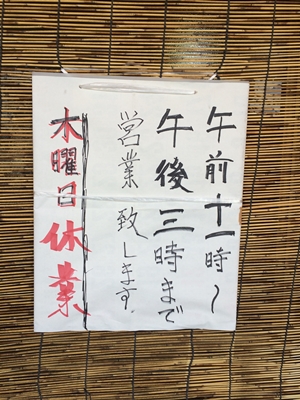 午前十一時〜
午後三時まで
営業致します.
木曜日休業